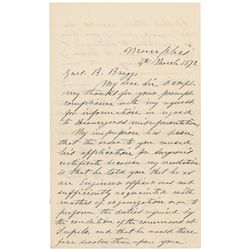 Memphis
4th March 1872
Genl. B. Bragg
My dear Sir accept
my thanks for your prompt
compliance with my request
for information in regard
to Beauregards misrepresentation
My impression has been
that the orders to you caused
his application for surgeons
certificate because my recollection
is that he told you that he as
an Engineer officer was not
sufficiently acquainted with
matters of organization &c to
perform the duties required by
the condition of the command at
Tupelo, and that he would there
fore devolve them upon you.